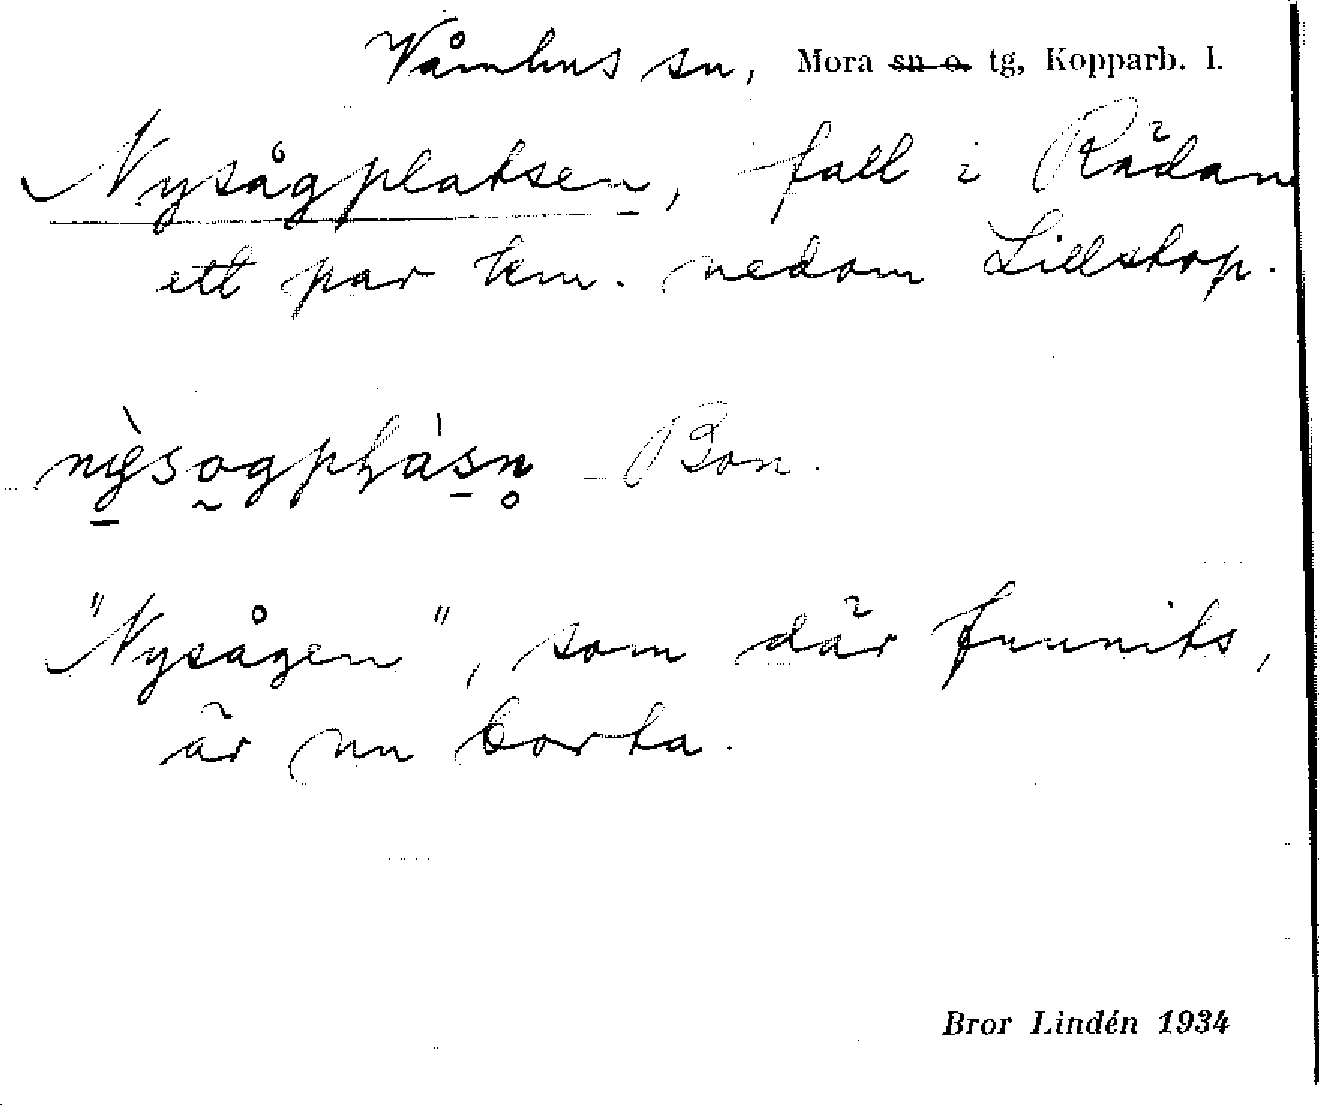 Våmhus sn, Mora sn o. tg, Kopparb. l.
Nysågplatsen, fall i Rädan
ett par km. nedom Lillstop.
Bon.
"Nysågen", som där funnits,
är nu borta.
Bror Lindén 1934